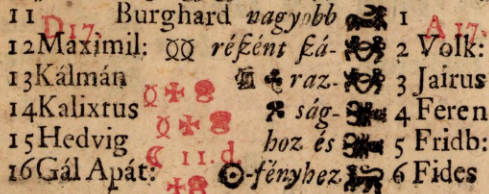 11 Burghard nagyobb 1
D 17. A 17.
12 Maximil: réſzént ſzá- 2 Volk:
13 Kálmán raz- 3 Jairus
14 Kalixtus ság- 4 Feren
15 Hedvig hoz és 5 Fridb:
☾ 11. d.
16 Gál Apát: ☉-fényhez 6 Fides